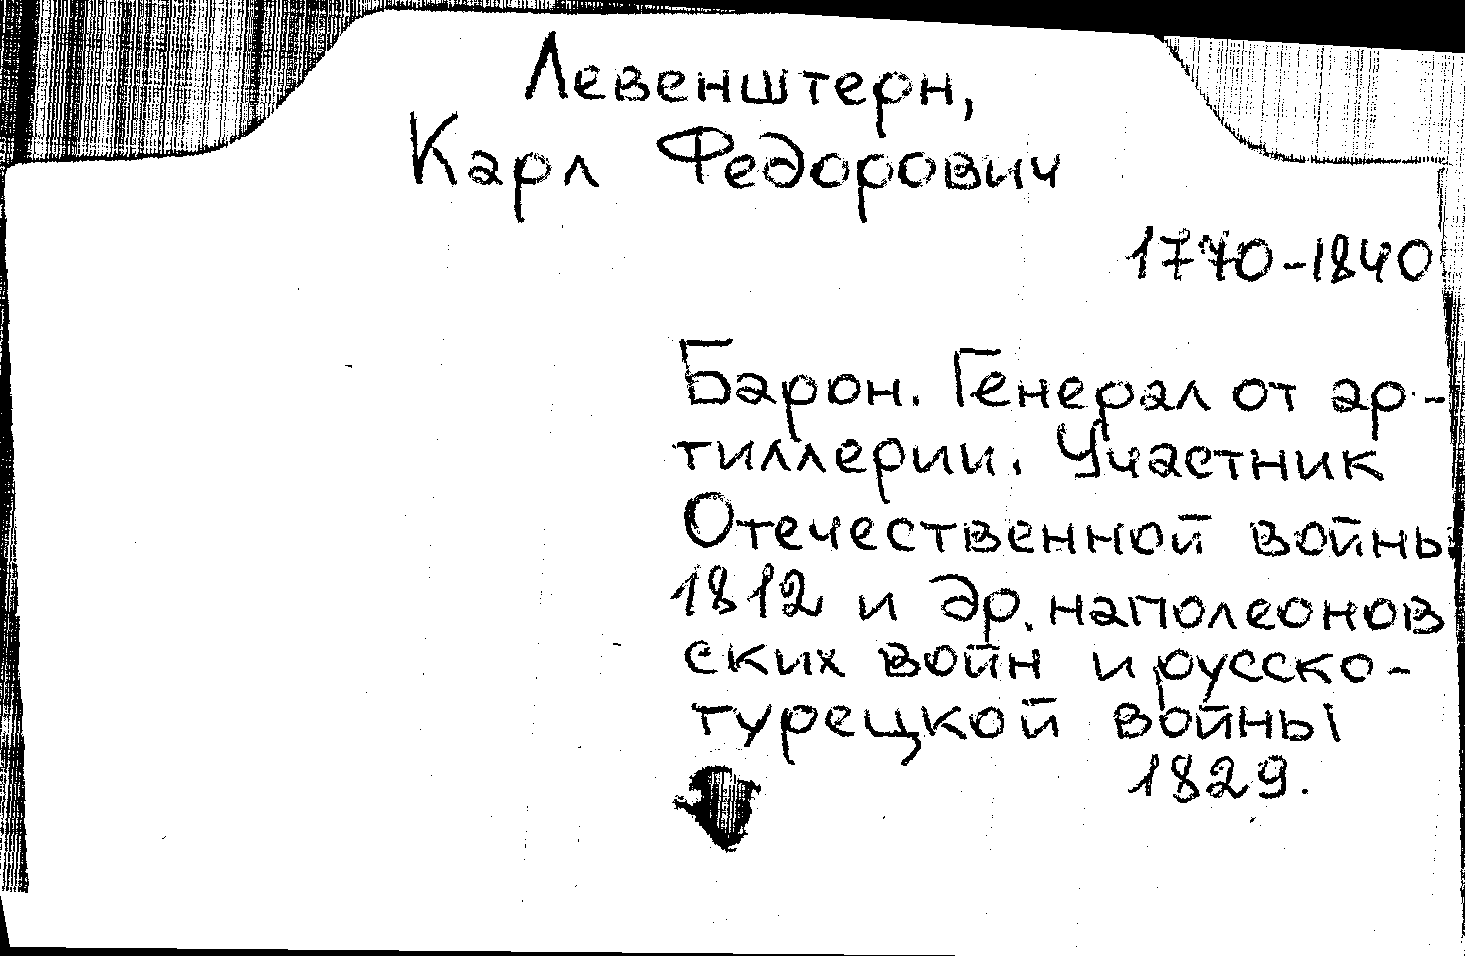 Левенштерн,
Карл Федорович
1770-1840
Барон. Генерал от ар-
тиллерии. Участник
Отечественной войны
1812 и др. наполеонов
ских войн и русско-
турецкой войны
1829.